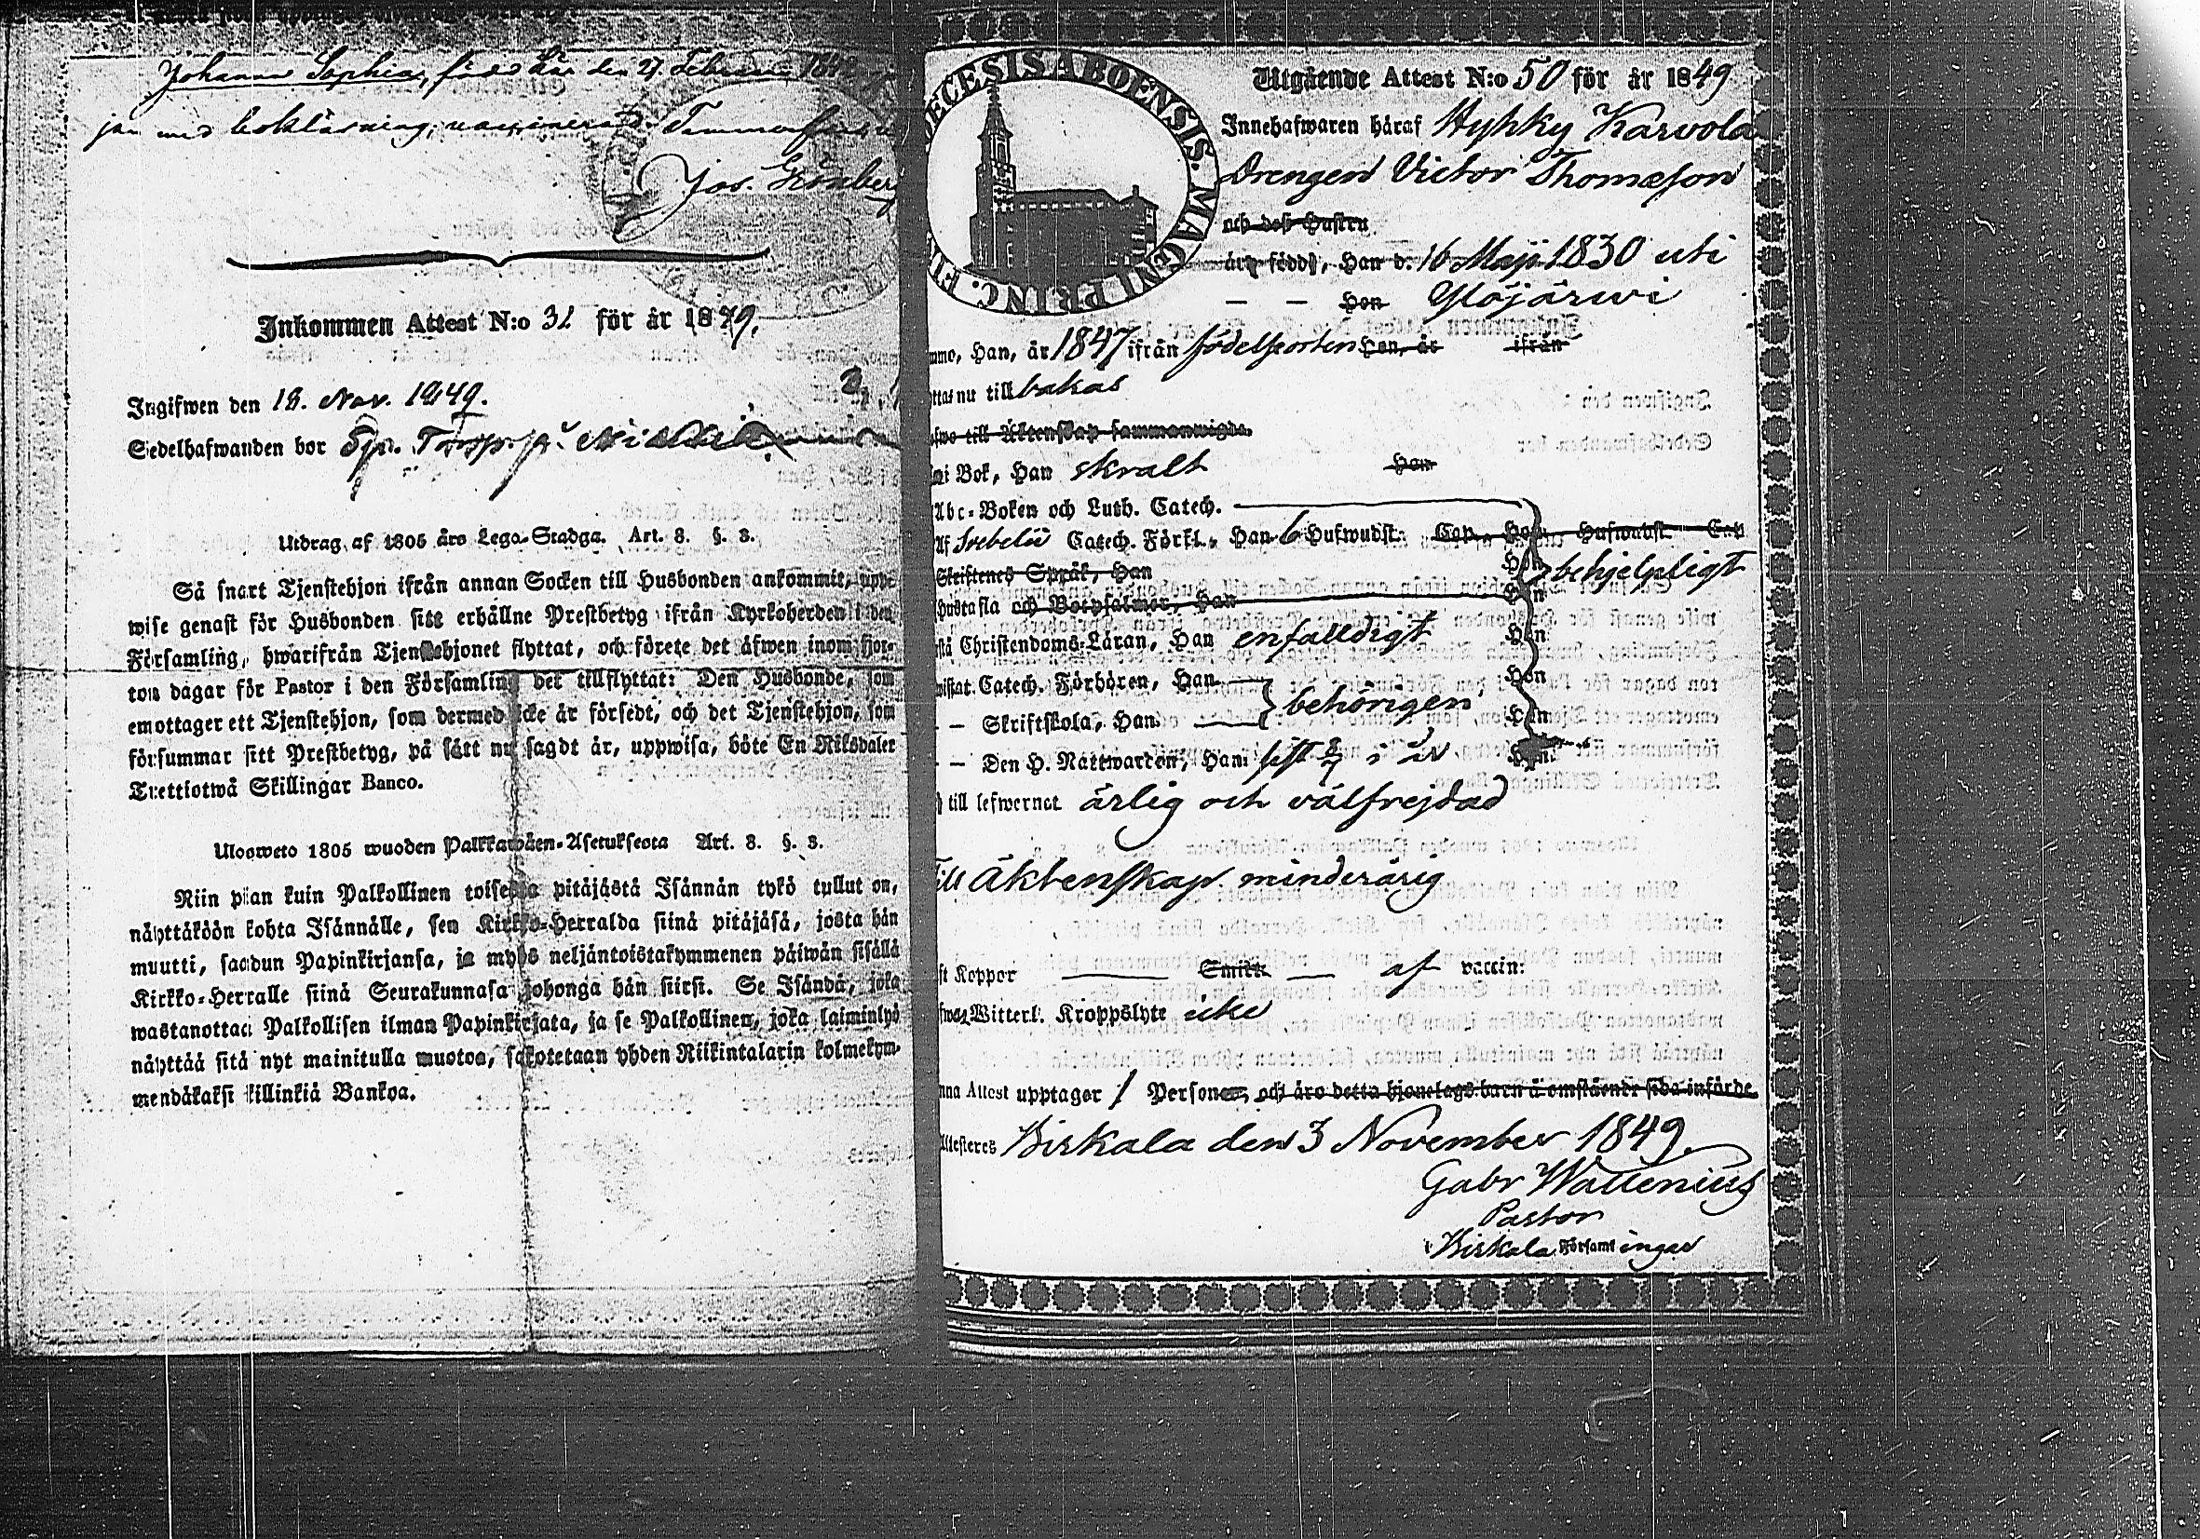 Johanna Sophia, född här den 27 Februari
jan med boklärning, vaccinerad. Tammerfors
Jos. Grönberg
Inkommen Attest N:o 31 för år 1849.
Ingifwen den 18. Nov. 1849.
Sedelhafwanden bor
Utdrag af 1805 års Lego-Stadga. Art. 8. §. 3.
Så snart Tjenstehjon ifrån annan Socken till Husbonden ankommit, uppe
wise genast för Husbonden sitt erhållne Prestbetyg ifrån Kyrkoherden i den
Församling, hwarifrån Tjenstehjonet flyttat, och förete det äfwen inom fjor-
ton dagar för Pastor i den Församling det tillflyttat: Den Husbonde, som
emottager ett Tjenstehjon, som dermed icke är försedt, och det Tjenstehjon, som
försummar sitt Prestbetyg, på sätt nu sagdt är, uppwisa, böte En Riksdaler
Trettiotwå Skillingar Banco.
Ulosweto 1805 wuoden Palkkawäen-Asetuksesta Art. 8. §. 3.
Niin pian kuin Palkollinen toisesta pitäjästä Isännän tykö tullut on,
näyttäköön kohta Isännälle, sen Kirkko-Herralda siinä pitäjäsä, josta hän
muutti, saadun Papinkirjansa, ja myös neljäntoistakymmenen päiwän sisällä
Kirkko-Herralle siinä Seurakunnasa johonga hän siirsi. Se Isändä, joka
wastanottaa Palkollisen ilman Papinkirjata, ja se Palkollinen, joka laiminlyö
näyttää sitä nyt mainitulla muotoa, sakotetaan yhden Riikintalarin kolmekym-
mendäkaksi killinkiä Bankoa.
DECESIS ABOENSIS. MAGNI PRINC. FI
Utgående Attest N:o 50 för år 1849
Innehafwaren häraf Hyhky Karvola
Drengen Victor Thomasson
och dess Hustru
äro född, Han d. 16 Maji 1830 uti
— — Hon Ylöjärwi
mmo, Han, år 1847 ifrån födelseorten Hon, år ifrån
ttas nu till bakas
till Äktenskap sammanwigde.
i Bok, Han skralt Hon
Abc-Boken och Luth. Catech.
Af Svebelii Catech. Förkl., Han 6 Hufwudst. Cap. Hon Hufwudst. Cap
Skriftenes Språk, Han Hon behjelpligt
hustafla och Botpsalmer, Han Hon
stå Christendoms-Läran, Han enfalldigt Hon
wistat Catech. Förhören, Han Hon
— Skriftskola, Han behörigen Hon
— Den H. Nattwarden, Han sist 8/7 i år Hon
till lefwernet ärlig och välfrejdad
Till Äktenskap minderårig
st Koppor — Smitt — af vaccin:
Witterl. Kroppslyte icke
nna Attest upptager 1 Personer, och äro detta hjonelags barn å omstående sida införde.
Attesteras Birkala den 3 November 1849.
Gabr Wallenius
Pastor
i Birkala Församlingar